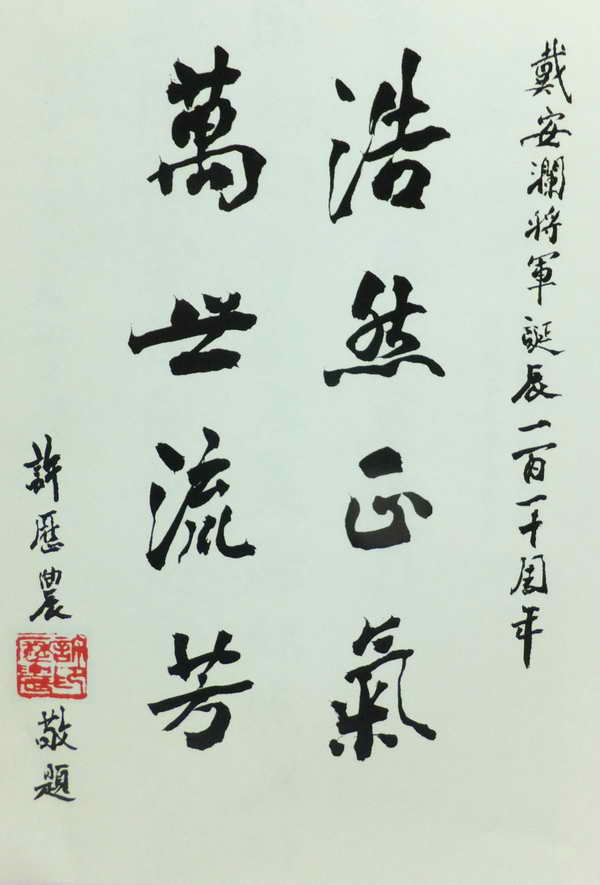 戴安瀾將軍誕辰一百一十周年
浩然正氣
萬世流芳
許歷農
敬題